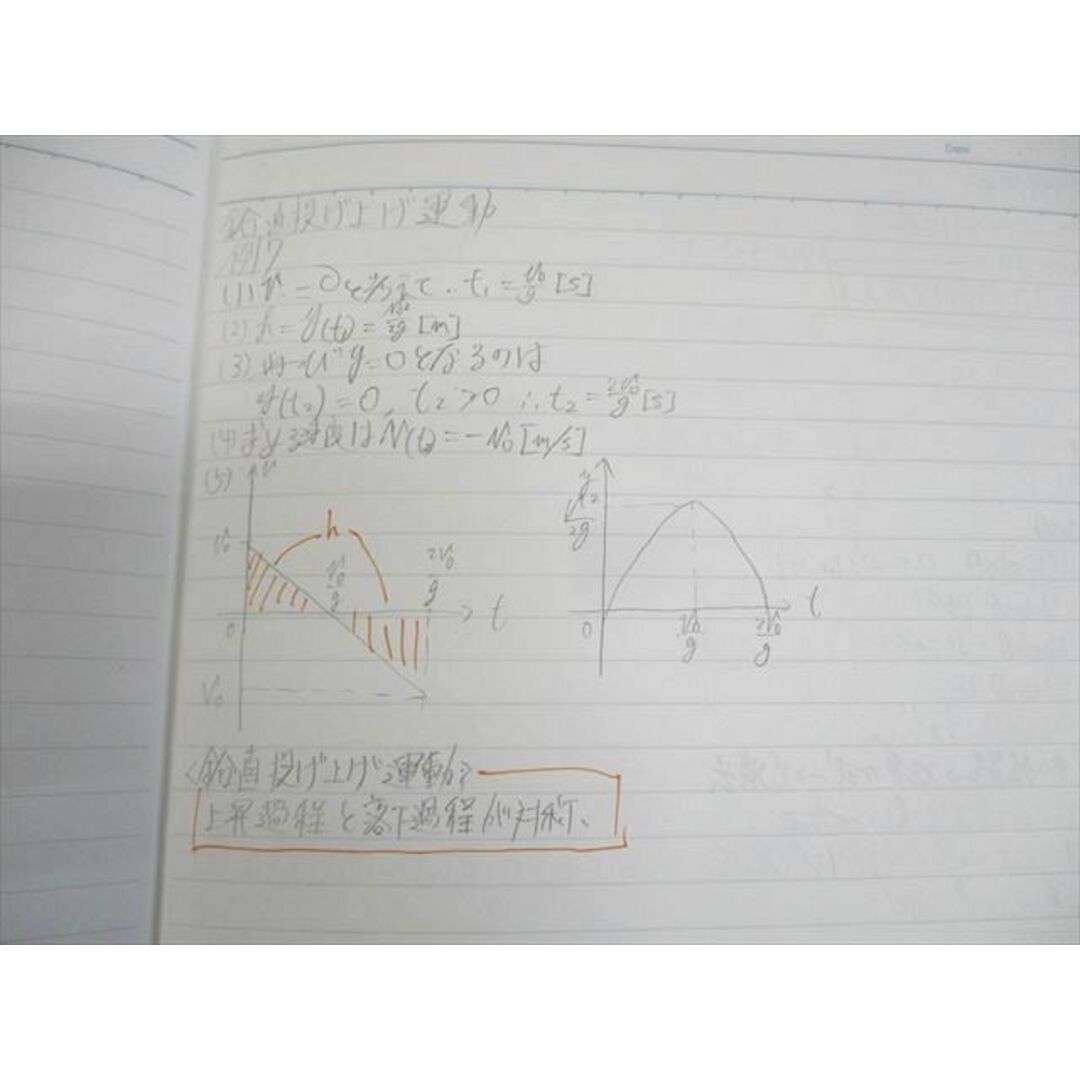 鉛直投げ上げ運動
(1) v=0を考えて ∴ t₁ = v₀/g [s]
(2) h = y(t₁) = v₀²/2g [m]
(3) 再び y=0となるのは
y(t₂) = 0, t₂ > 0 ∴ t₂ = 2v₀/g [s]
(4) 速度は v(t₂) = -v₀ [m/s]
(5)
v
v₀
h
v₀/g
2v₀/g
0
t
v₀
y
v₀²/2g
0
v₀/g
2v₀/g
t
<鉛直投げ上げ運動>
上昇過程と落下過程が対称、